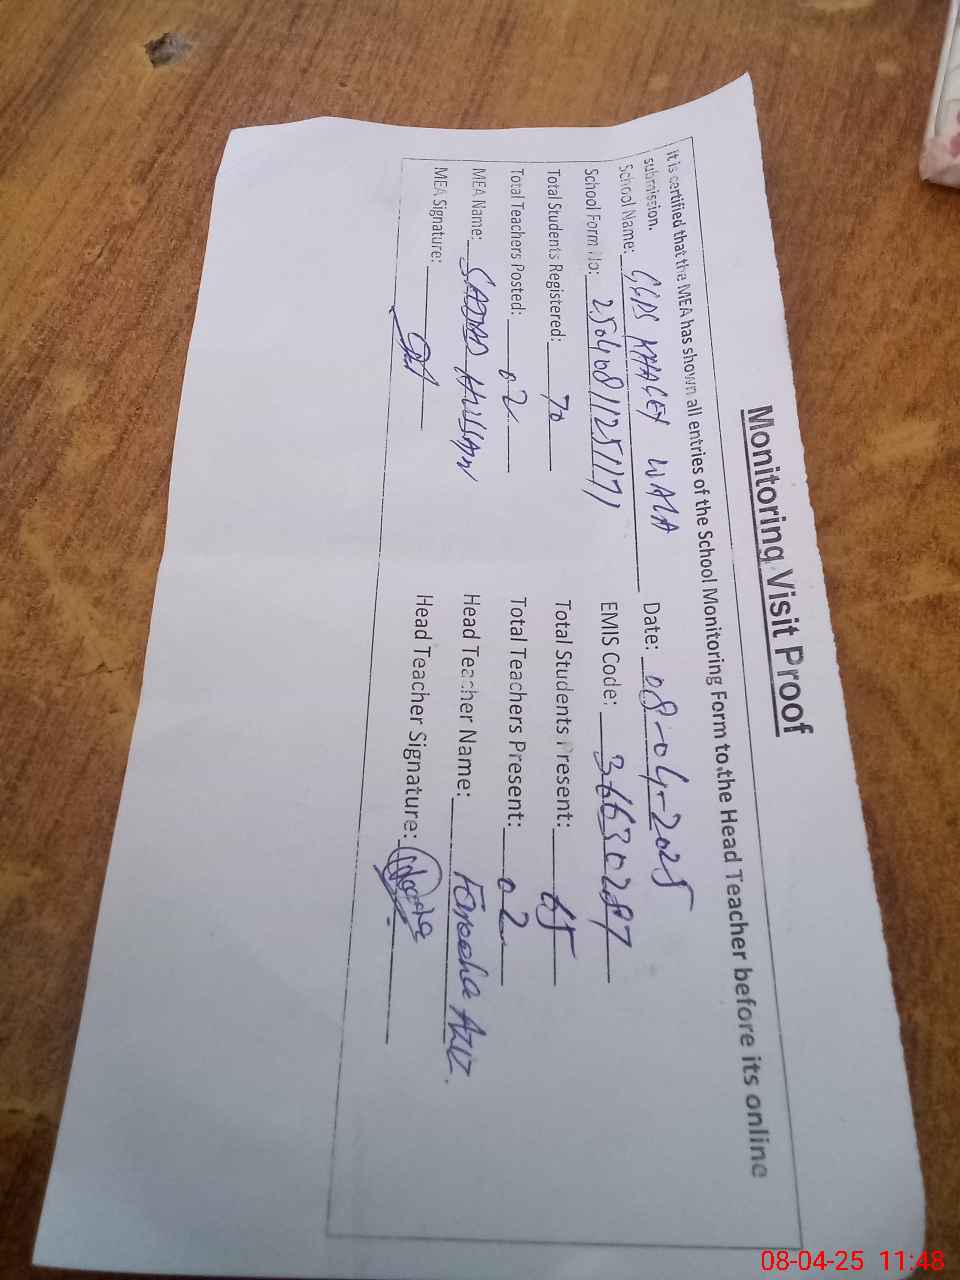 Monitoring Visit Proof
It is certified that the MEA has shown all entries of the School Monitoring Form to the Head Teacher before its online
submission.
School Name: WALA Date: 08-04-2025
School Form No: EMIS Code: 36630287
Total Students Registered: 70 Total Students Present: 65
Total Teachers Posted: 02 Total Teachers Present: 02
MEA Name: SAJJAD HUSSAIN Head Teacher Name: Fareeha Aziz.
MEA Signature: Head Teacher Signature:
08-04-25 11:48